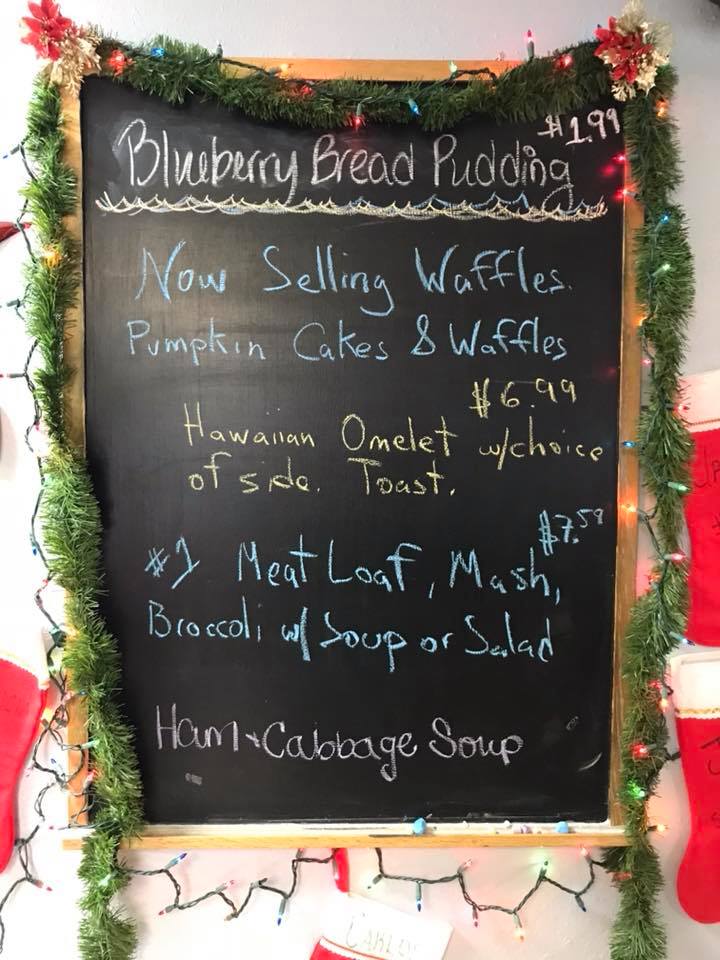 $1.99
Blueberry Bread Pudding
Now Selling Waffles.
Pumpkin Cakes & Waffles
$6.99
Hawaiian Omelet w/choice
of side. Toast.
$7.59
#1 Meat Loaf, Mash,
Broccoli w/ Soup or Salad
Ham + Cabbage Soup
CARLOS